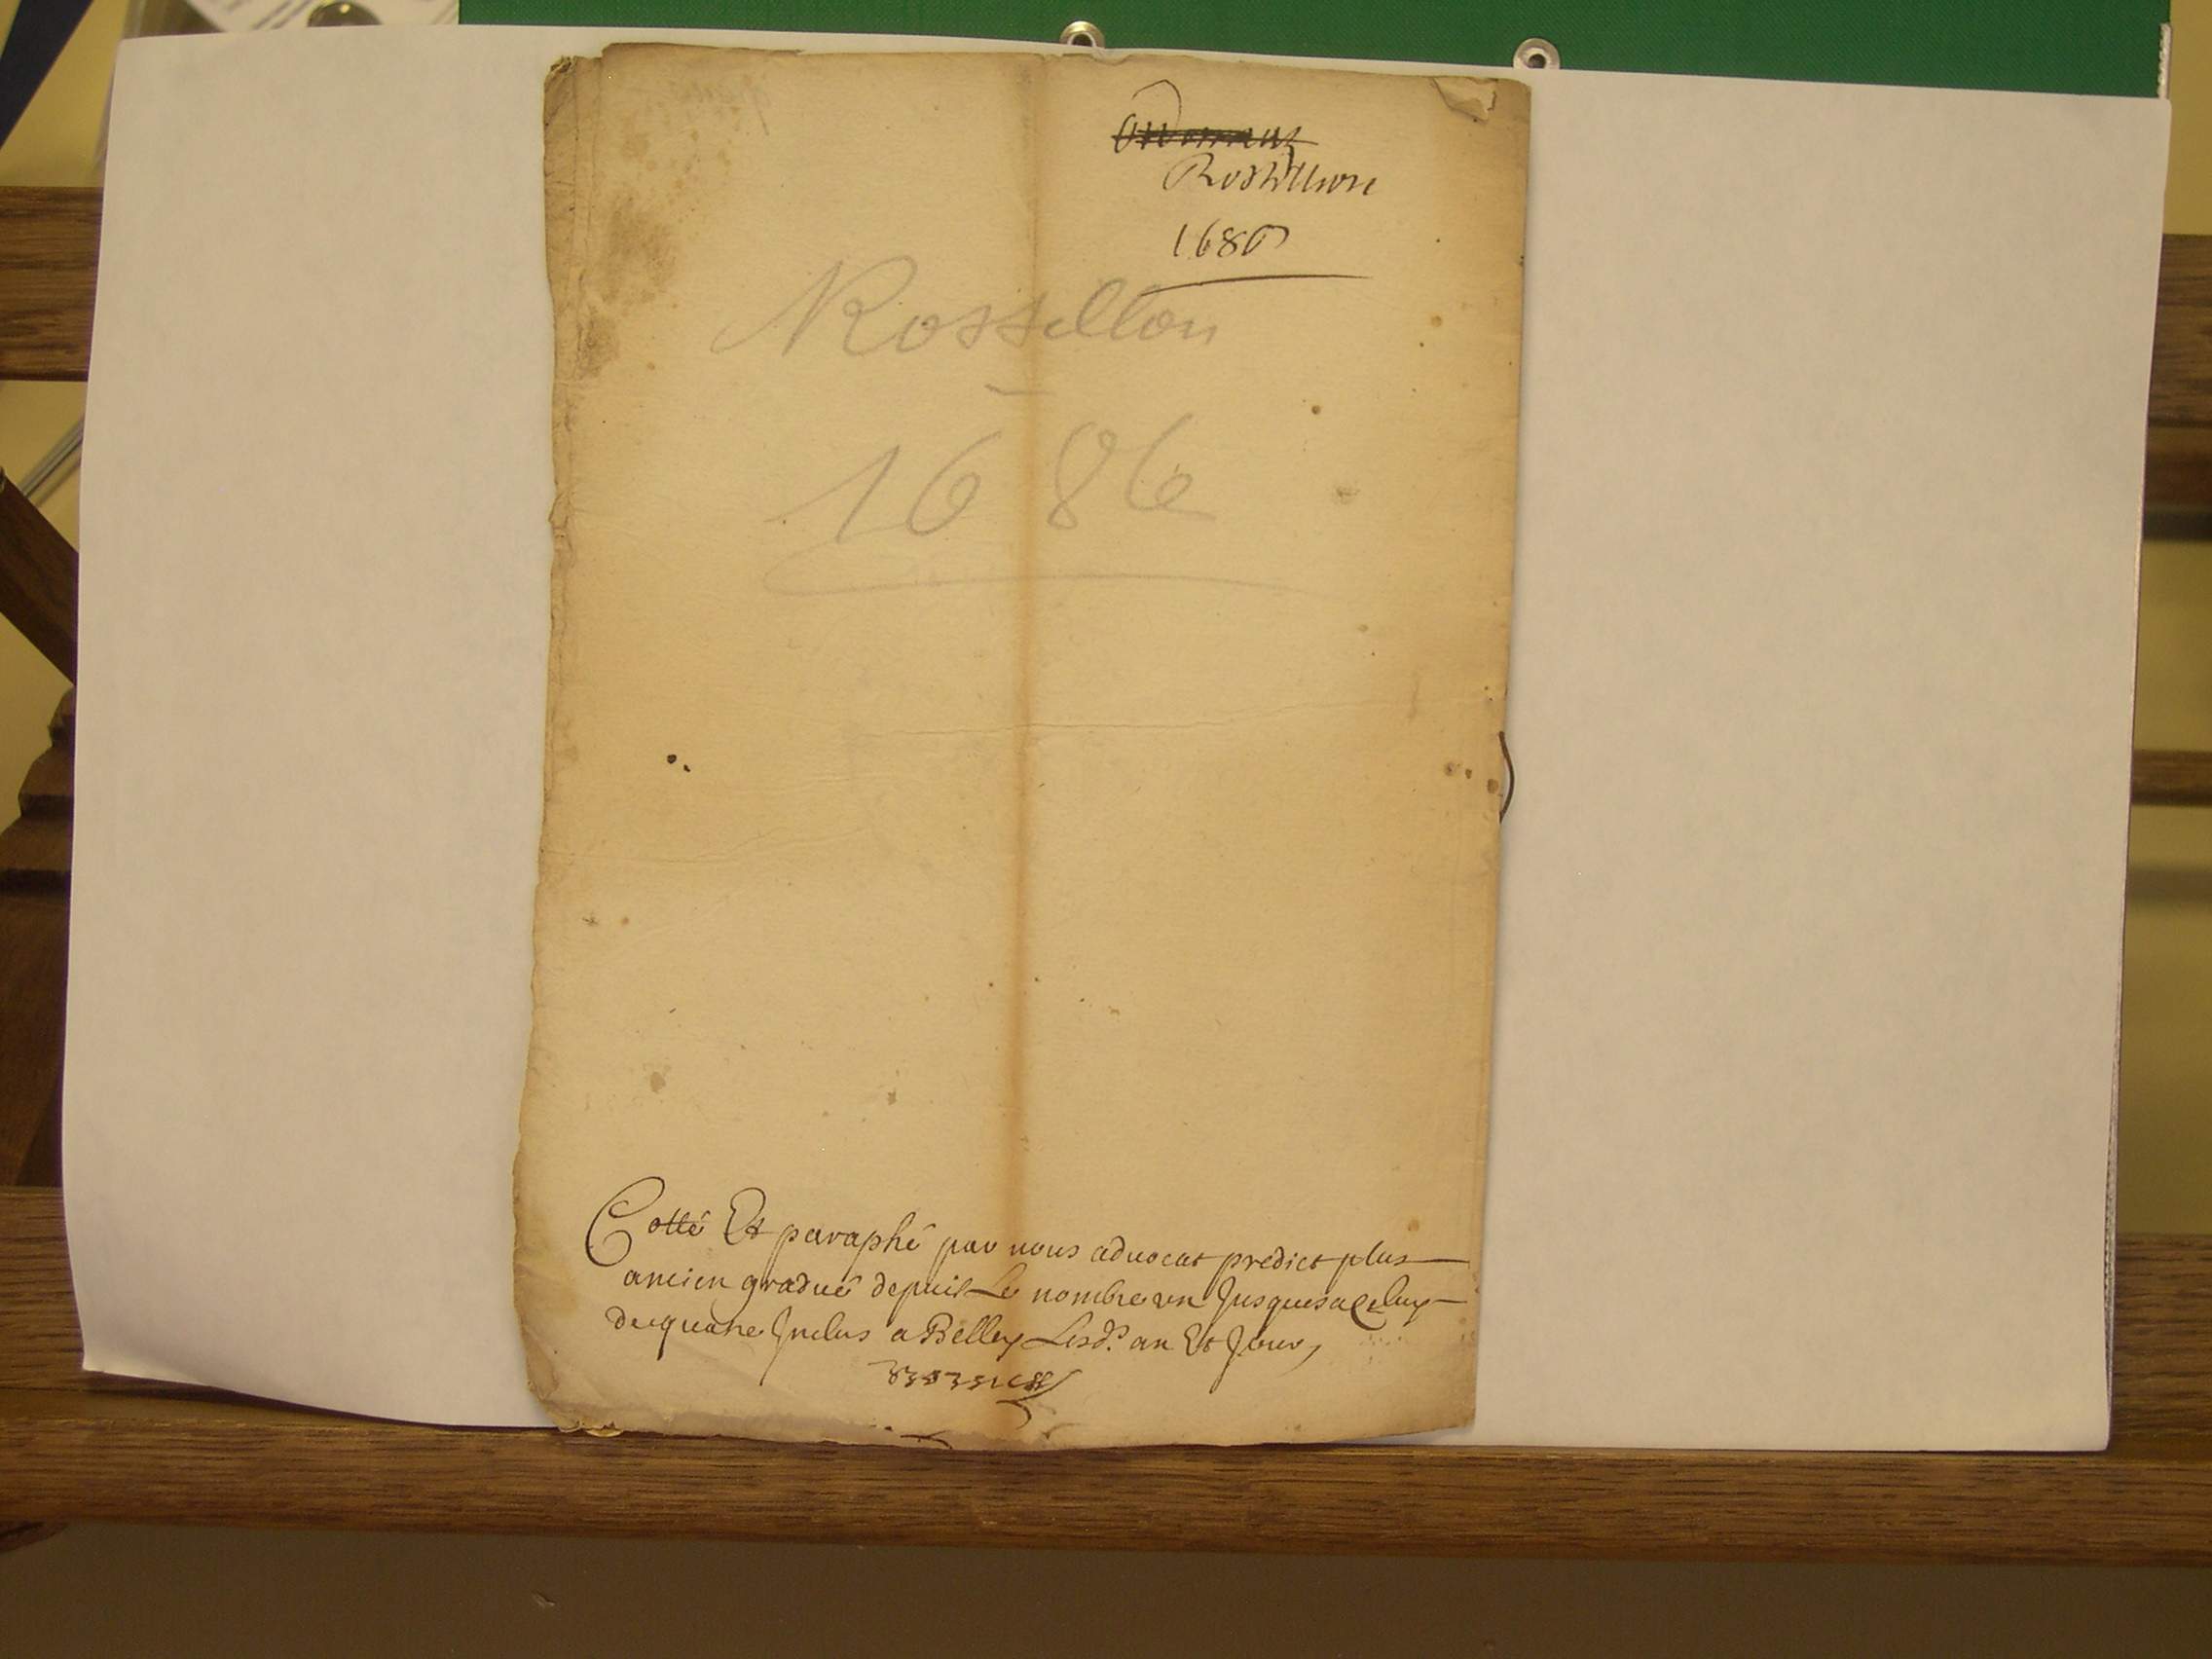 Rossillion
1686
Rossillon
1686
Cotté Et paraphé par nous advocat predict plus
ancien gradué depuis Le nombre un Jusques a Celuy
de quatre Inclus a Belley Lesd.s an Et Jour,